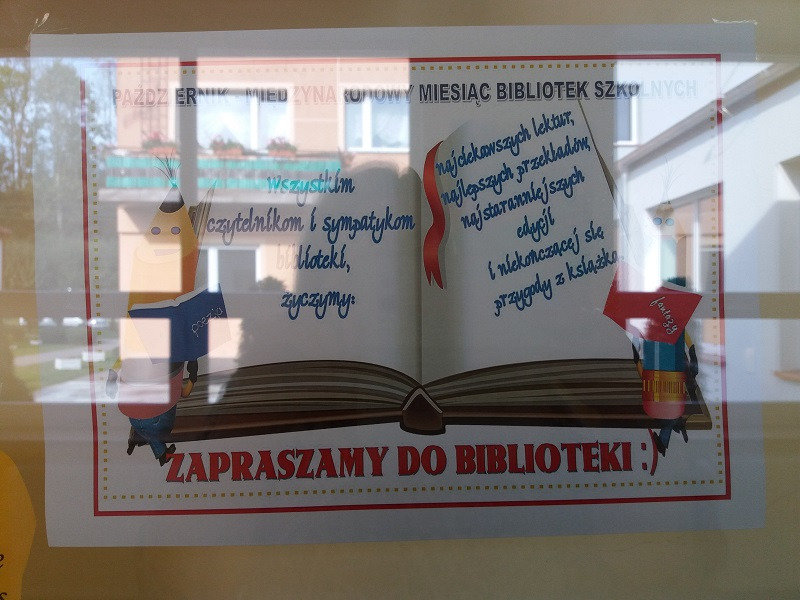 PAŹDZIERNIK MIĘDZYNARODOWY MIESIĄC BIBLIOTEK SZKOLNYCH
wszystkim
czytelnikom i sympatykom
biblioteki,
życzymy:
najciekawszych lektur,
najlepszych przekładów,
najstaranniejszych
edycji
i niekończącej się
przygody z książką.
poezja
fantazy
ZAPRASZAMY DO BIBLIOTEKI :)
e
s